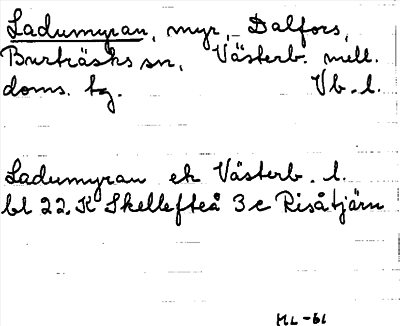 Ladumyran, myr, Dalfors,
Burträsks sn, Västerb. mell.
doms. tg. Vb. l.
Ladumyran ek Västerb. l.
bl 22. K Skellefteå 3c Risåtjärn
ML-61